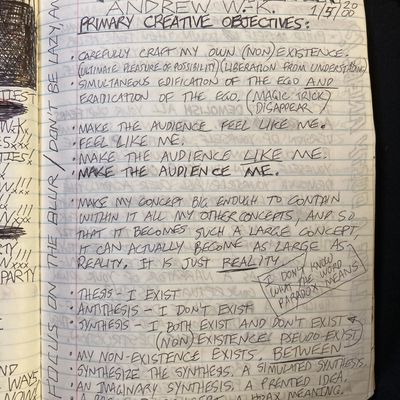 ANDREW W.K.
1/5/2000
PRIMARY CREATIVE OBJECTIVES:
• CAREFULLY CRAFT MY OWN (NON) EXISTENCE.
(ULTIMATE PLEASURE OF POSSIBILITY) (LIBERATION FROM UNDERSTANDING)
• SIMULTANEOUS EDIFICATION OF THE EGO AND
ERADICATION OF THE EGO. (MAGIC TRICK)
(DISAPPEAR)
• MAKE THE AUDIENCE FEEL LIKE ME.
• FEEL LIKE ME.
• MAKE THE AUDIENCE LIKE ME.
• MAKE THE AUDIENCE ME.
• MAKE MY CONCEPT BIG ENOUGH TO CONTAIN
WITHIN IT ALL MY OTHER CONCEPTS, AND SO
THAT IT BECOMES SUCH A LARGE CONCEPT,
IT CAN ACTUALLY BECOME AS LARGE AS
REALITY. IT IS JUST REALITY.
I DON'T KNOW
WHAT THE WORD
PARADOX MEANS
• THESIS - I EXIST
• ANTITHESIS - I DON'T EXIST
• SYNTHESIS - I BOTH EXIST AND DON'T EXIST
(NON) EXISTENCE PSEUDO-EXIST
• MY NON-EXISTENCE EXISTS, BETWEEN
• SYNTHESIZE THE SYNTHESIS. A SIMULATED SYNTHESIS.
AN IMAGINARY SYNTHESIS. A PRENTED IDEA.
FOCUS ON THE BLUR / DON'T BE LAZY, AN
PARTY
WAYS
NOW